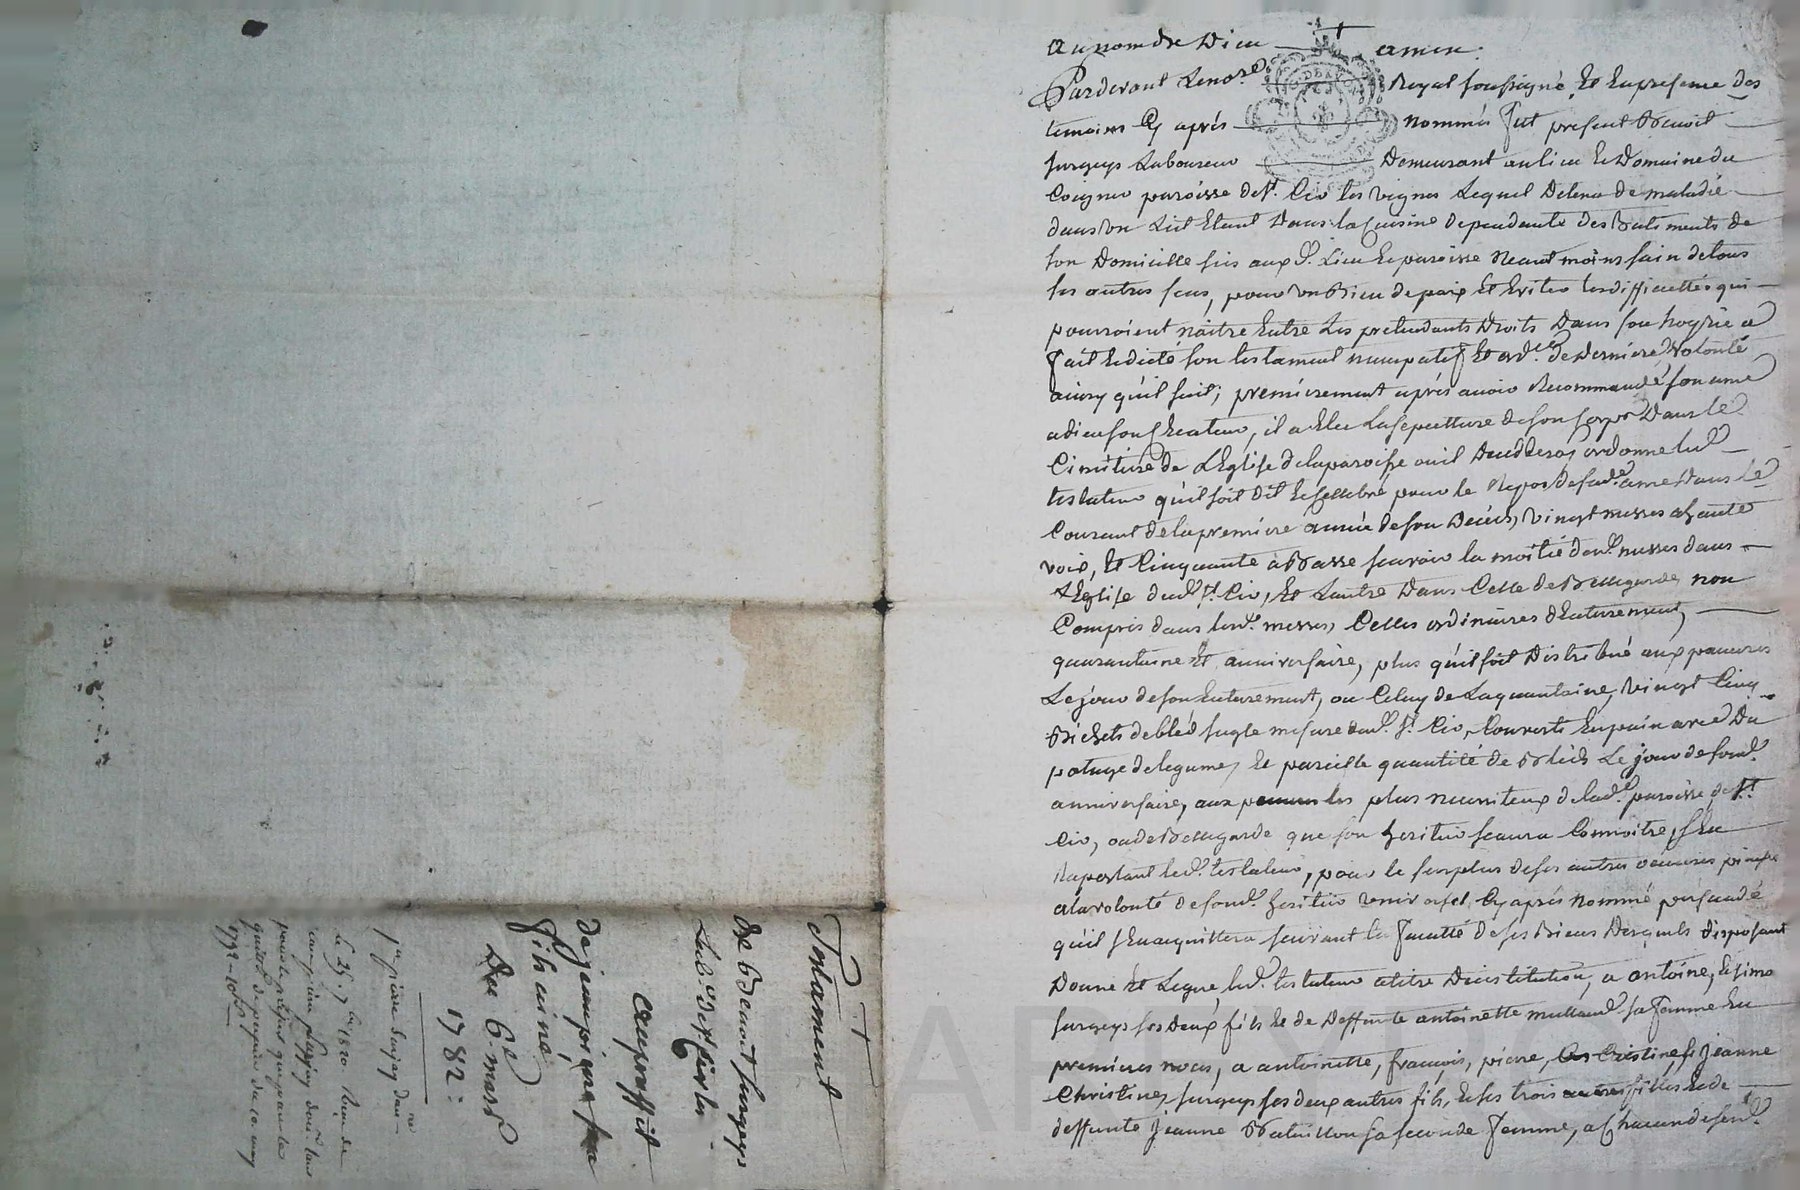 au nom de Dieu amen.
Pardevant Le nore. Royal soussigné, Et En presence des
temoins Cy après nommés fut present Benoit
Surgeys Laboureur Demeurant au lieu & Domaine du
paroisse de St. Cir les vignes Lequel Detenu de maladie
dans un Lict Etant Dans la Cuisine dependante des Batiments de
son Domicille sis aux d. Lieu & paroisse Neantmoins sain de tous
ses autres sens, pour un Bien de paix Et Eviter les difficultés qui
pourroient naitre Entre Les pretendants Droits Dans son hoyrie a
fait & dicté son testament nuncupatif Et ordce. de Derniere Volonté
ainsy qu'il suit; premierement après avoir Recommandé son ame
a dieu son Createur, il a Elu La sepulture de son Corps Dans le
Cimitiere de L'Eglise de la paroisse ou il Decedera, ordonne led.
testateur qu'il soit dit & cellebré pour le Repos de sad. ame Dans Le
Courant de la premiere année de son Décès, Vingt messes a haute
voix, Et Cinquante à Basse scavoir la moitié desd. messes dans
L'Eglise dud. St. Cir, Et Lautre Dans Celle de Bellegarde, non
Compris dans lesd. messes, Celles ordinaires d'Enterement,
quarantaine Et anniversaire, plus qu'il soit Distribué aux pauvres
Le jour de son Enterement, ou Celuy de La quarantaine, Vingt Cinq
Bichets de bled seigle mesure dud. St. Cir, Convertis En pain avec Du
potage de legumes, & pareille quantité de Bled Le jour de sond.
anniversaire, aux plus necessiteux de lad. paroisse de St.
Cir, ou de Bellegarde que son heritier scaura Connoitre, s'En
Raportant led. testateur, pour le surplus de ses autres oeuvres pieuses
a la volonté de sond. heritier universel Cy après nommé persuadé
qu'il s'En acquittera suivant la faculté de ses Biens Desquels disposant
Donne Et Legue, led. testateur a titre D'institution, a antoine, & simon
Surgeys ses Deux fils & de Deffunte antoinette sa femme En
premieres noces, a antoinette, françois, pierre, & jeanne
Christine, Surgeys ses deux autres fils, & ses trois filles & de
deffunte jeanne Bataillon sa seconde femme, a Chacun desquels

Testament
de Benoit Surgeys
Lab. de St Cir les
au proffit
de jean pierre
fils ainé
Du 6e mars
1782:
pierre Surjey
Le 25. 7bre 1820